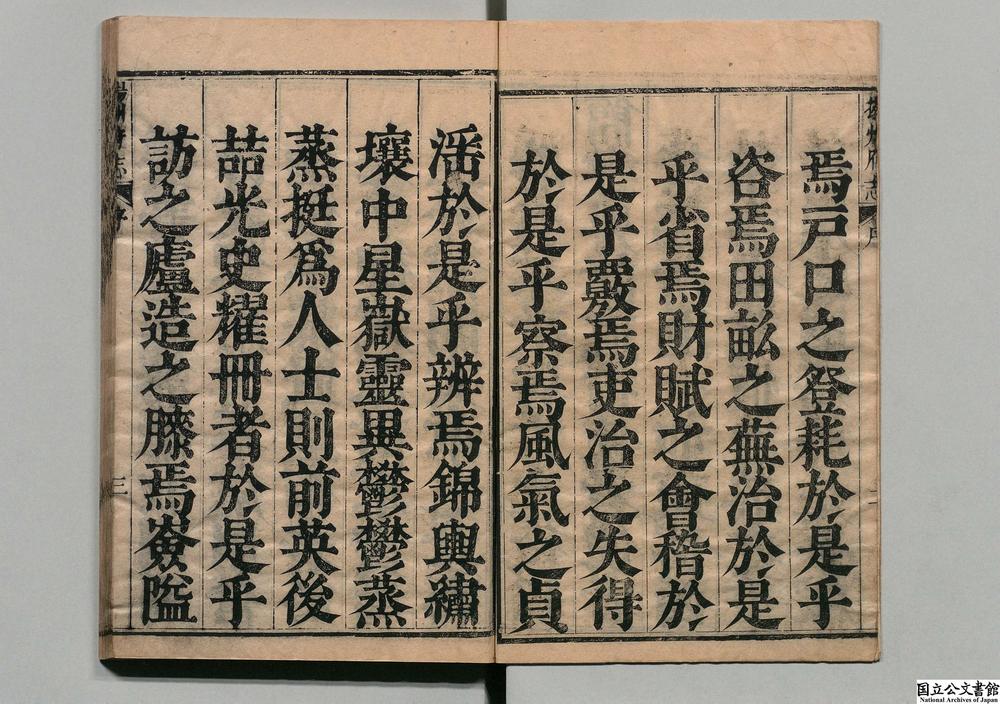 焉戸口之登耗於是乎
咨焉田畝之蕪治於是
乎省焉財賦之會稽於
是乎覈焉吏治之失得
於是乎察焉風氣之貞
淫於是乎辨焉錦輿繡
壤中星嶽靈異鬱鬱蒸
蒸挺爲人士則前英後
喆光史耀冊者於是乎
訪之廬造之膝焉僉隘
揚州府志
序
二
三
国立公文書館
National Archives of Japan